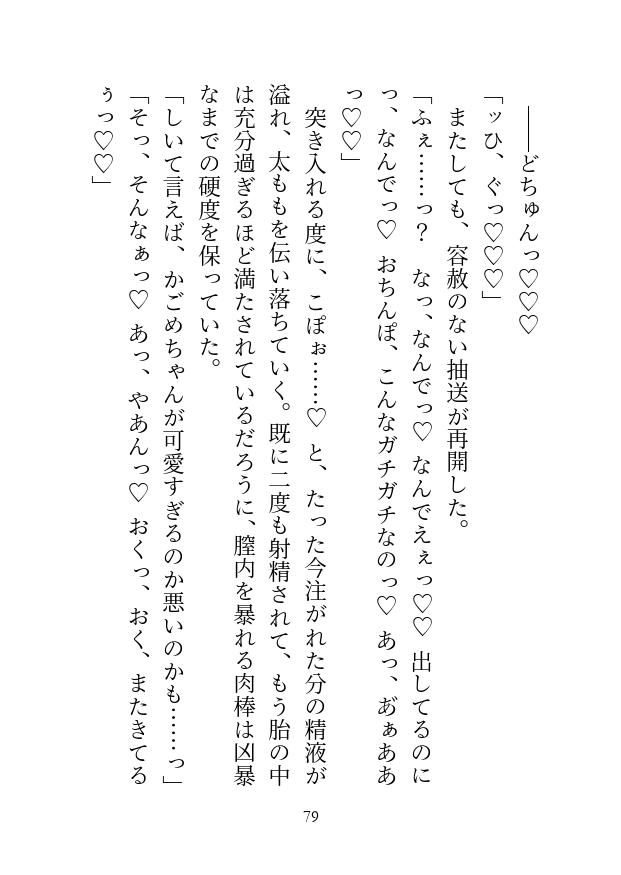 ――どちゅんっ♡♡♡
「ッひ、ぐっ♡♡♡」
またしても、容赦のない抽送が再開した。
「ふぇ……っ？　なっ、なんでっ♡ なんでえぇっ♡♡ 出してるのに
っ、なんでっ♡ おちんぽ、こんなガチガチなのっ♡ あっ、あ゛ぁああ
っ♡♡」
突き入れる度に、こぽぉ……♡ と、たった今注がれた分の精液が
溢れ、太ももを伝い落ちていく。既に二度も射精されて、もう胎の中
は充分過ぎるほど満たされているだろうに、膣内を暴れる肉棒は凶暴
なまでの硬度を保っていた。
「しいて言えば、かごめちゃんが可愛すぎるのか悪いのかも……っ」
「そっ、そんなぁっ♡ あっ、やあんっ♡ おくっ、おく、またきてる
ぅっ♡♡」
79